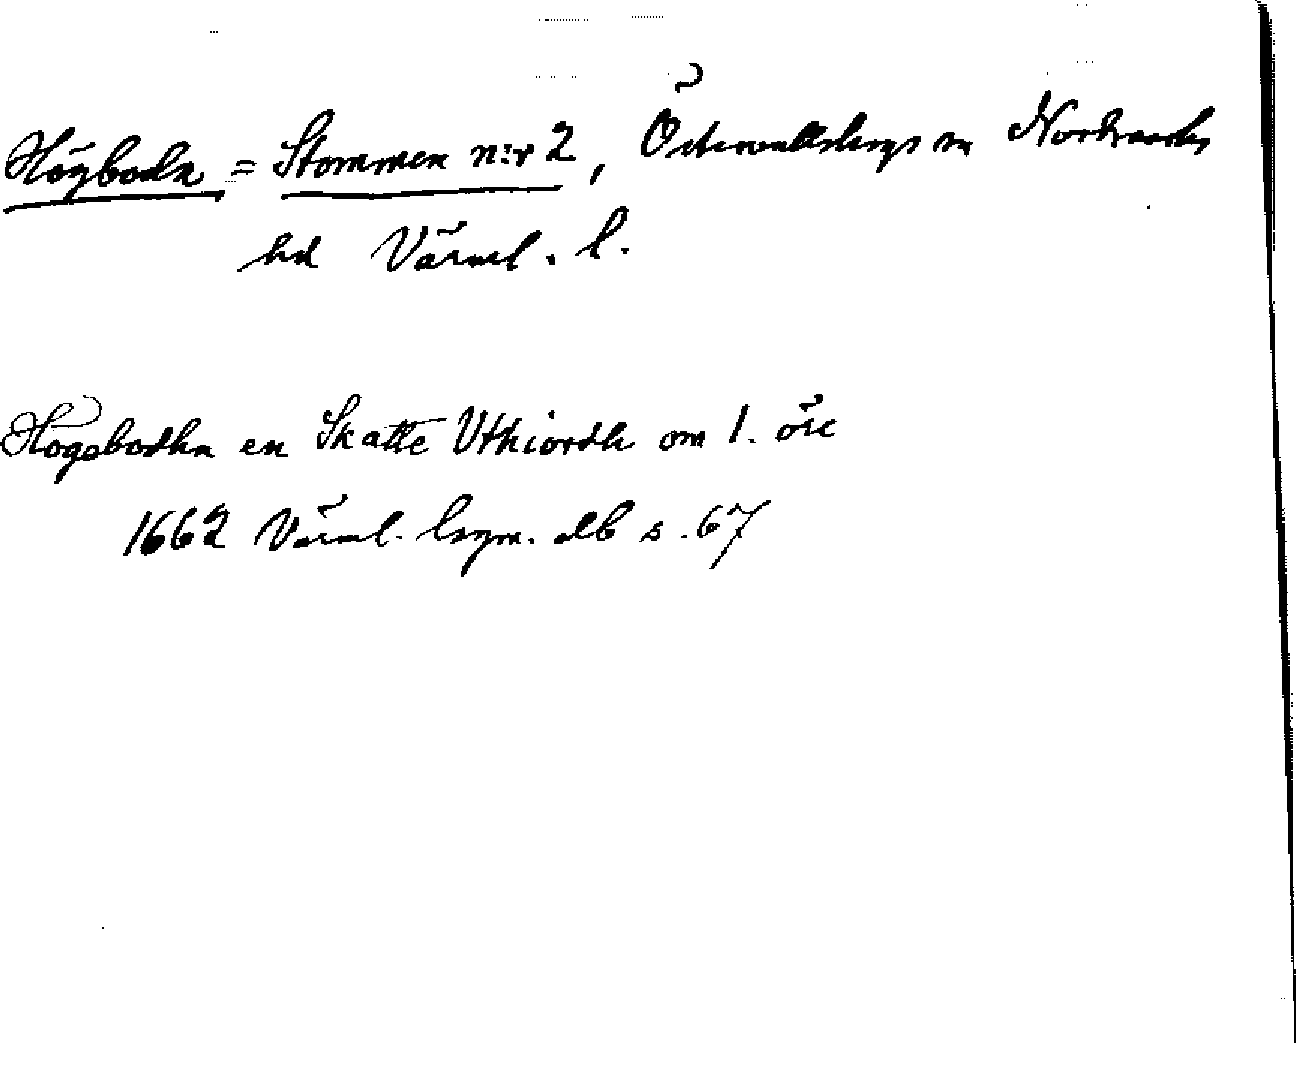 Högboda = Stommen n:r 2, Östervallskogs sn Nordmarks
hd Värml. l.
Högsbodha en Skatte Uthiordh om 1. öre
1662 Värml. lsgm. alb s. 67